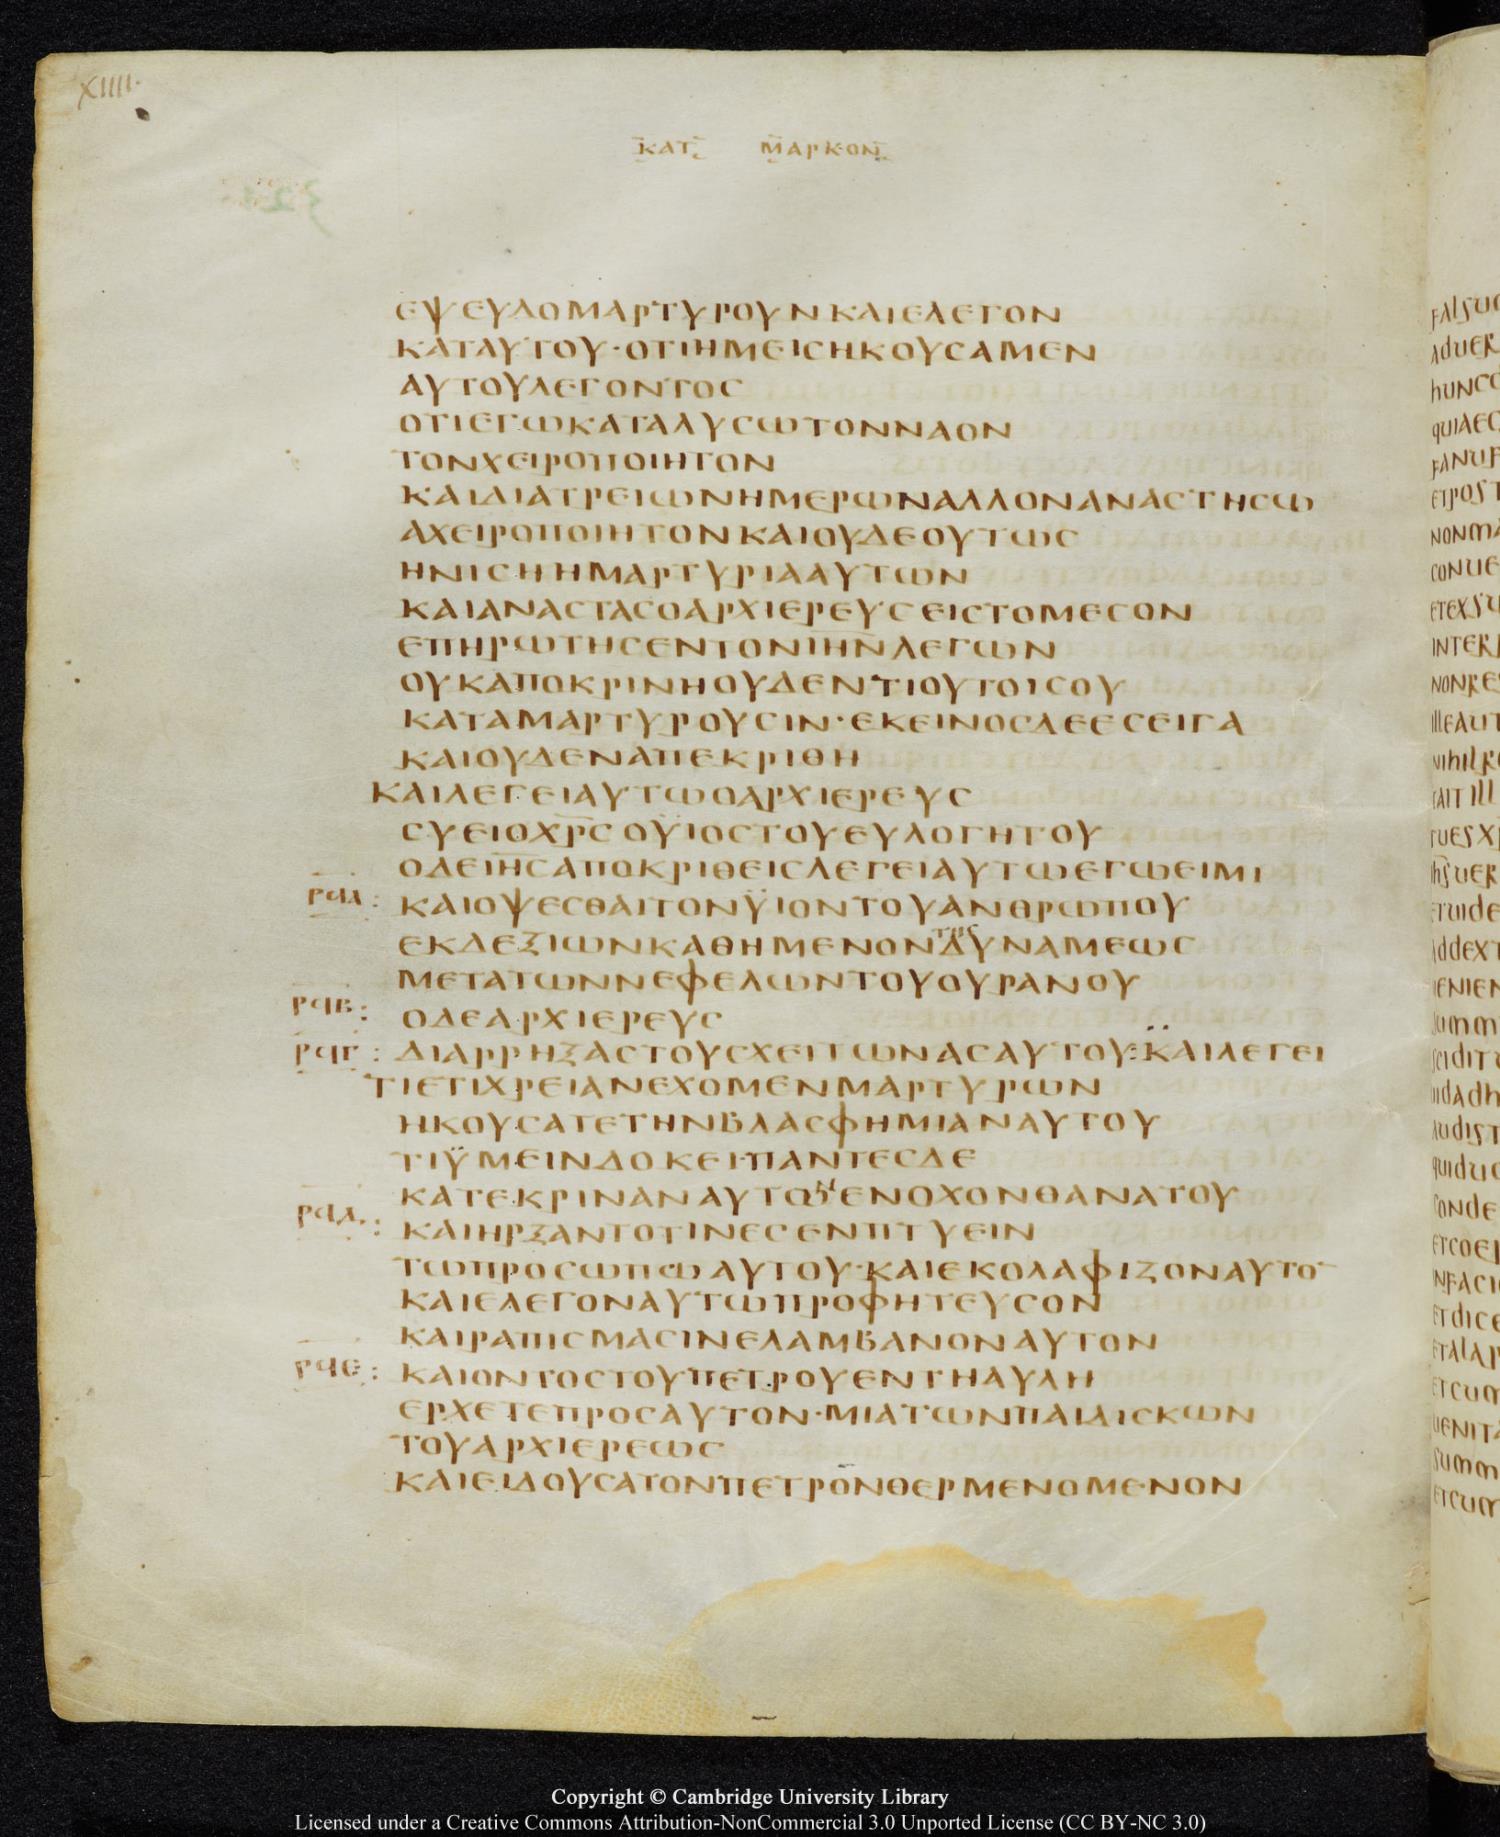 XIIII·
ΚΑΤ ΜΑΡΚΟΝ
ΕΨΕΥΔΟΜΑΡΤΥΡΟΥΝΚΑΙΕΛΕΓΟΝ
ΚΑΤΑΥΤΟΥ·ΟΤΙΗΜΕΙСΗΚΟΥСΑΜΕΝ
ΑΥΤΟΥΛΕΓΟΝΤΟС
ΟΤΙΕΓΩΚΑΤΑΛΥСΩΤΟΝΝΑΟΝ
ΤΟΝΧΕΙΡΟΠΟΙΗΤΟΝ
ΚΑΙΔΙΑΤΡΕΙΩΝΗΜΕΡΩΝΑΛΛΟΝΑΝΑСΤΗСΩ
ΑΧΕΙΡΟΠΟΙΗΤΟΝΚΑΙΟΥΔΕΟΥΤΩС
ΗΝΙСΗΗΜΑΡΤΥΡΙΑΑΥΤΩΝ
ΚΑΙΑΝΑСΤΑСΟΑΡΧΙΕΡΕΥСΕΙСΤΟΜΕСΟΝ
ΕΠΗΡΩΤΗСΕΝΤΟΝΙΗΝΛΕΓΩΝ
ΟΥΚΑΠΟΚΡΙΝΗΟΥΔΕΝΤΙΟΥΤΟΙСΟΥ
ΚΑΤΑΜΑΡΤΥΡΟΥСΙΝ·ΕΚΕΙΝΟСΔΕΕСΕΙΓΑ
ΚΑΙΟΥΔΕΝΑΠΕΚΡΙΘΗ
ΚΑΙΛΕΓΕΙΑΥΤΩΟΑΡΧΙΕΡΕΥС
СΥΕΙΟΧΡСΟΥΙΟСΤΟΥΕΥΛΟΓΗΤΟΥ
ΟΔΕΙΗСΑΠΟΚΡΙΘΕΙСΛΕΓΕΙΑΥΤΩΕΓΩΕΙΜΙ
ΡϤΑ: ΚΑΙΟΨΕСΘΑΙΤΟΝΫΙΟΝΤΟΥΑΝΘΡΩΠΟΥ
ΕΚΔΕΞΙΩΝΚΑΘΗΜΕΝΟΝΤΗСΔΥΝΑΜΕΩС
ΜΕΤΑΤΩΝΝΕΦΕΛΩΝΤΟΥΟΥΡΑΝΟΥ
ΡϤΒ: ΟΔΕΑΡΧΙΕΡΕΥС
ΡϤΓ: ΔΙΑΡΡΗΞΑСΤΟΥСΧΕΙΤΩΝΑСΑΥΤΟΥ:ΚΑΙΛΕΓΕΙ
ΤΙΕΤΙΧΡΕΙΑΝΕΧΟΜΕΝΜΑΡΤΥΡΩΝ
ΗΚΟΥСΑΤΕΤΗΝΒΛΑСΦΗΜΙΑΝΑΥΤΟΥ
ΤΙΫΜΕΙΝΔΟΚΕΙ·ΠΑΝΤΕСΔΕ
ΚΑΤΕΚΡΙΝΑΝΑΥΤΩΝΕΝΟΧΟΝΘΑΝΑΤΟΥ
ΡϤΔ: ΚΑΙΗΡΞΑΝΤΟΤΙΝΕСΕΝΠΤΥΕΙΝ
ΤΩΠΡΟСΩΠΩΑΥΤΟΥ·ΚΑΙΕΚΟΛΑΦΙΖΟΝΑΥΤΟ
ΚΑΙΕΛΕΓΟΝΑΥΤΩΠΡΟΦΗΤΕΥСΟΝ
ΚΑΙΡΑΠΙСΜΑСΙΝΕΛΑΜΒΑΝΟΝΑΥΤΟΝ
ΡϤΕ: ΚΑΙΟΝΤΟСΤΟΥΠΕΤΡΟΥΕΝΤΗΑΥΛΗ
ΕΡΧΕΤΕΠΡΟСΑΥΤΟΝ·ΜΙΑΤΩΝΠΑΙΔΙСΚΩΝ
ΤΟΥΑΡΧΙΕΡΕΩС
ΚΑΙΕΙΔΟΥСΑΤΟΝΠΕΤΡΟΝΘΕΡΜΕΝΟΜΕΝΟΝ
Copyright © Cambridge University Library
Licensed under a Creative Commons Attribution-NonCommercial 3.0 Unported License (CC BY-NC 3.0)